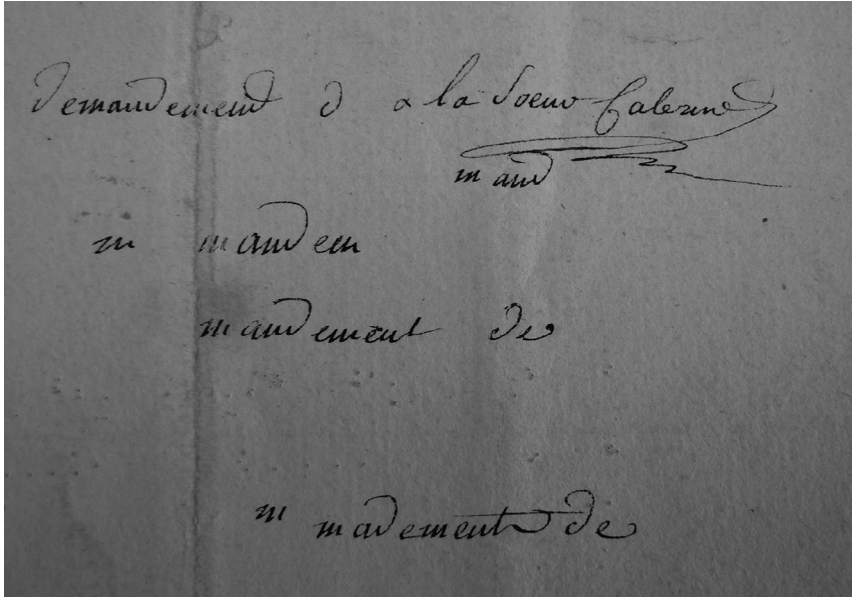 demandement d a la soeur
mand
m mandem
mandement de
m mademente de